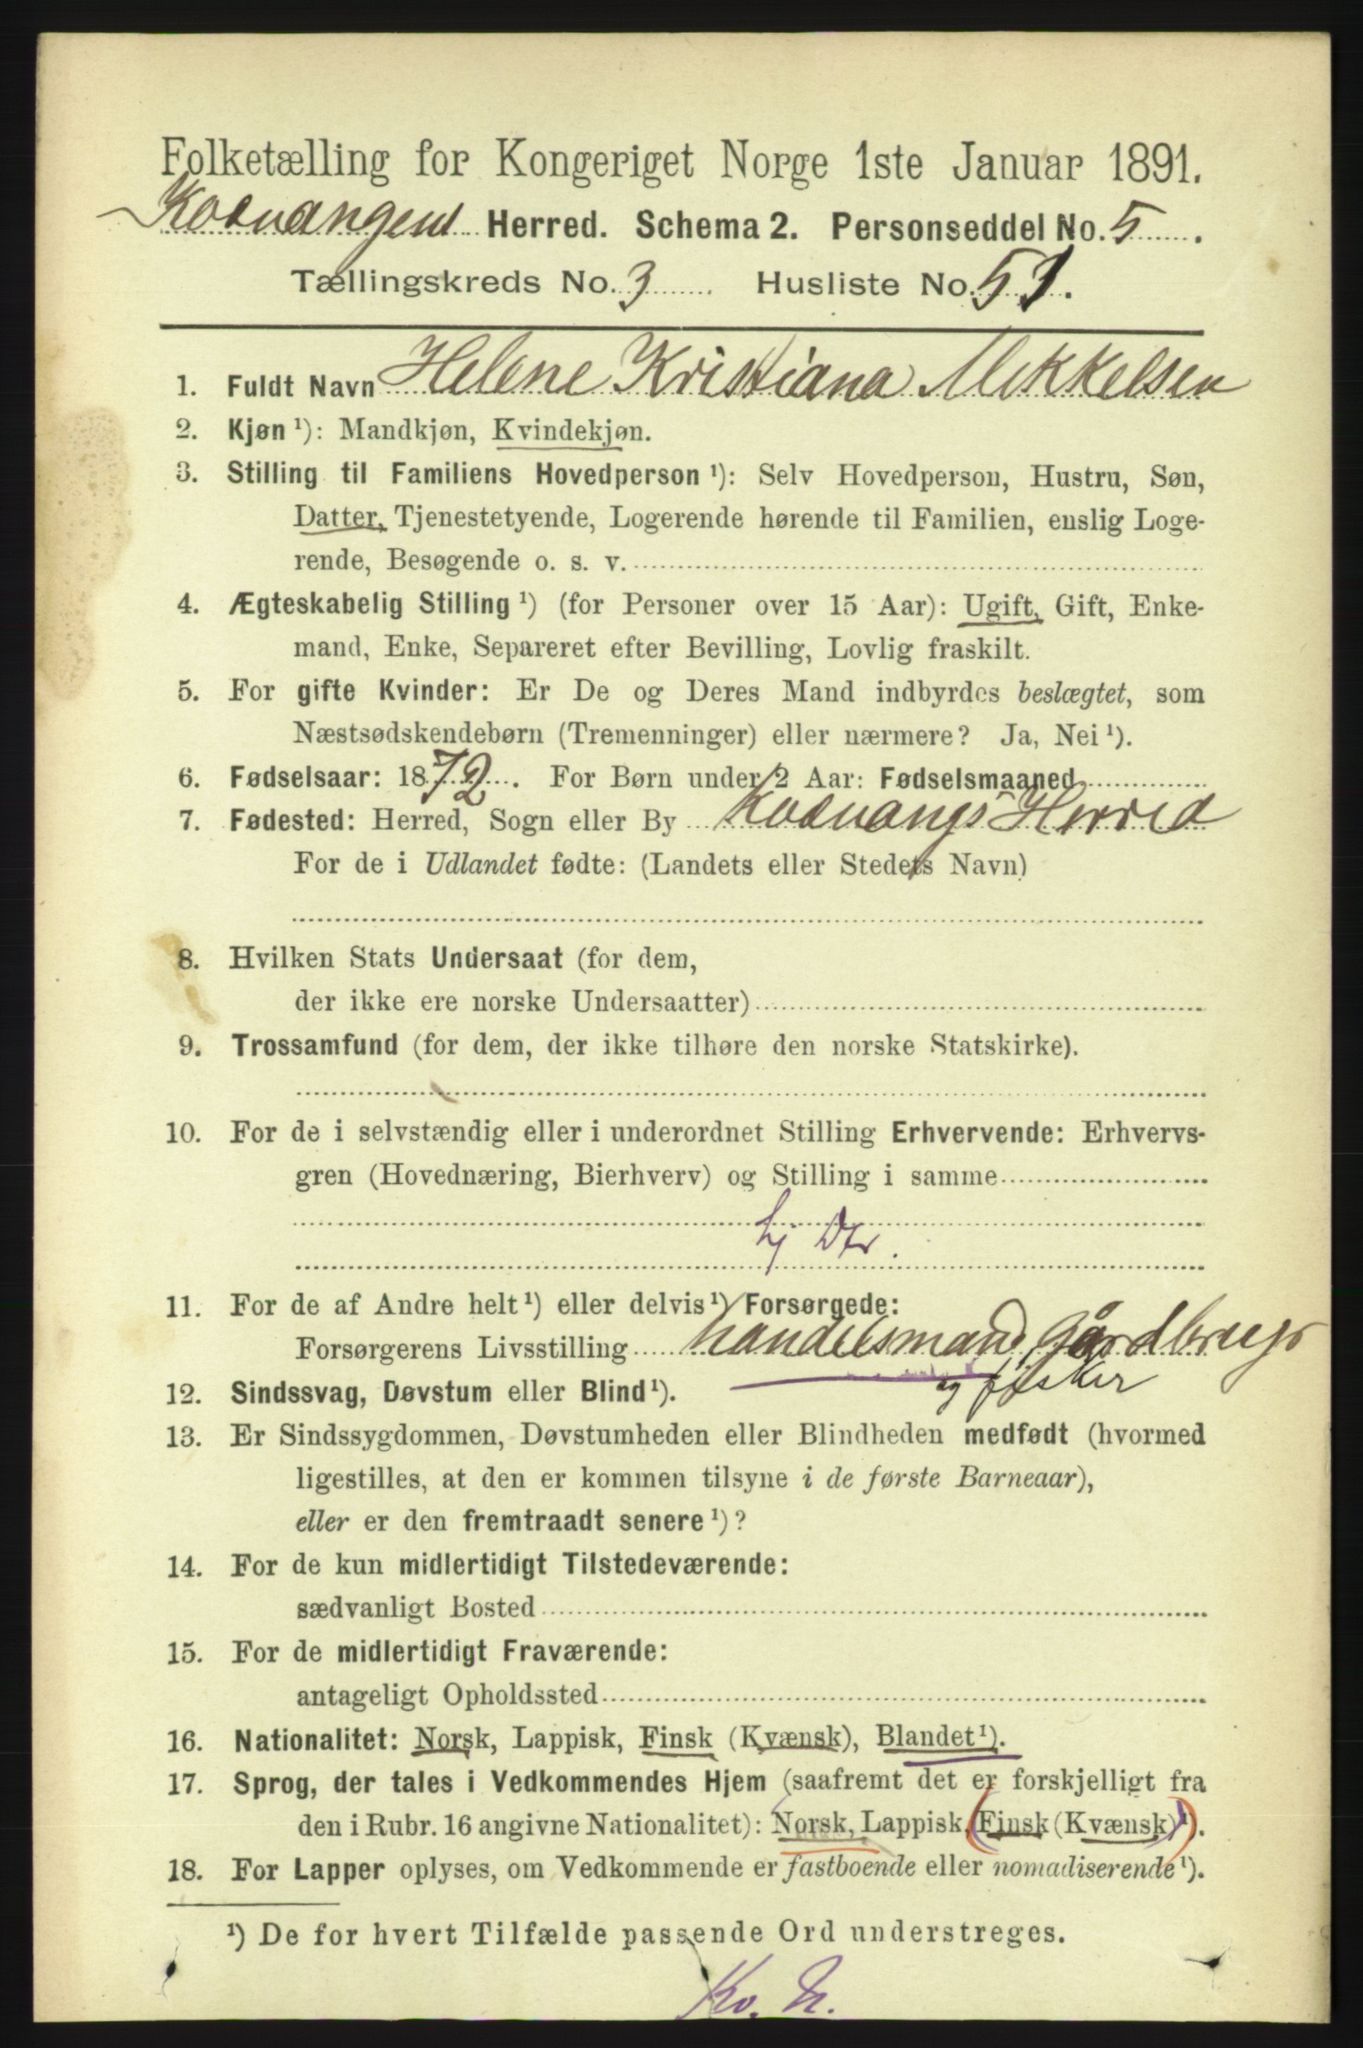 Folketælling for Kongeriget Norge 1ste Januar 1891.
Kvænangen Herred. Schema 2. Personseddel No. 5.
Tællingskreds No. 3 Husliste No. 51.
1. Fuldt Navn Helene Kristiana Mekkelsen
2. Kjøn ¹): Mandkjøn, Kvindekjøn.
3. Stilling til Familiens Hovedperson ¹): Selv Hovedperson, Hustru, Søn,
Datter, Tjenestetyende, Logerende hørende til Familien, enslig Loge-
rende, Besøgende o. s. v.
4. Ægteskabelig Stilling ¹) (for Personer over 15 Aar): Ugift, Gift, Enke-
mand, Enke, Separeret efter Bevilling, Lovlig fraskilt.
5. For gifte Kvinder: Er De og Deres Mand indbyrdes beslægtet, som
Næstsødskendebørn (Tremenninger) eller nærmere? Ja, Nei ¹).
6. Fødselsaar: 1872. For Børn under 2 Aar: Fødselsmaaned
7. Fødested: Herred, Sogn eller By Kvænangs Herred
For de i Udlandet fødte: (Landets eller Stedets Navn)
8. Hvilken Stats Undersaat (for dem,
der ikke ere norske Undersaatter)
9. Trossamfund (for dem, der ikke tilhøre den norske Statskirke).
10. For de i selvstændig eller i underordnet Stilling Erhvervende: Erhvervs-
gren (Hovednæring, Bierhverv) og Stilling i samme
hj Dtr.
11. For de af Andre helt ¹) eller delvis ¹) Forsørgede:
Forsørgerens Livsstilling handelsmand, gårdbruger
og fisker
12. Sindssvag, Døvstum eller Blind ¹).
13. Er Sindssygdommen, Døvstumheden eller Blindheden medfødt (hvormed
ligestilles, at den er kommen tilsyne i de første Barneaar),
eller er den fremtraadt senere ¹)?
14. For de kun midlertidigt Tilstedeværende:
sædvanligt Bosted
15. For de midlertidigt Fraværende:
antageligt Opholdssted
16. Nationalitet: Norsk, Lappisk, Finsk (Kvænsk), Blandet ¹).
17. Sprog, der tales i Vedkommendes Hjem (saafremt det er forskjelligt fra
den i Rubr. 16 angivne Nationalitet): Norsk, Lappisk, Finsk (Kvænsk) ¹).
18. For Lapper oplyses, om Vedkommende er fastboende eller nomadiserende ¹).
¹) De for hvert Tilfælde passende Ord understreges.
Kv. N.